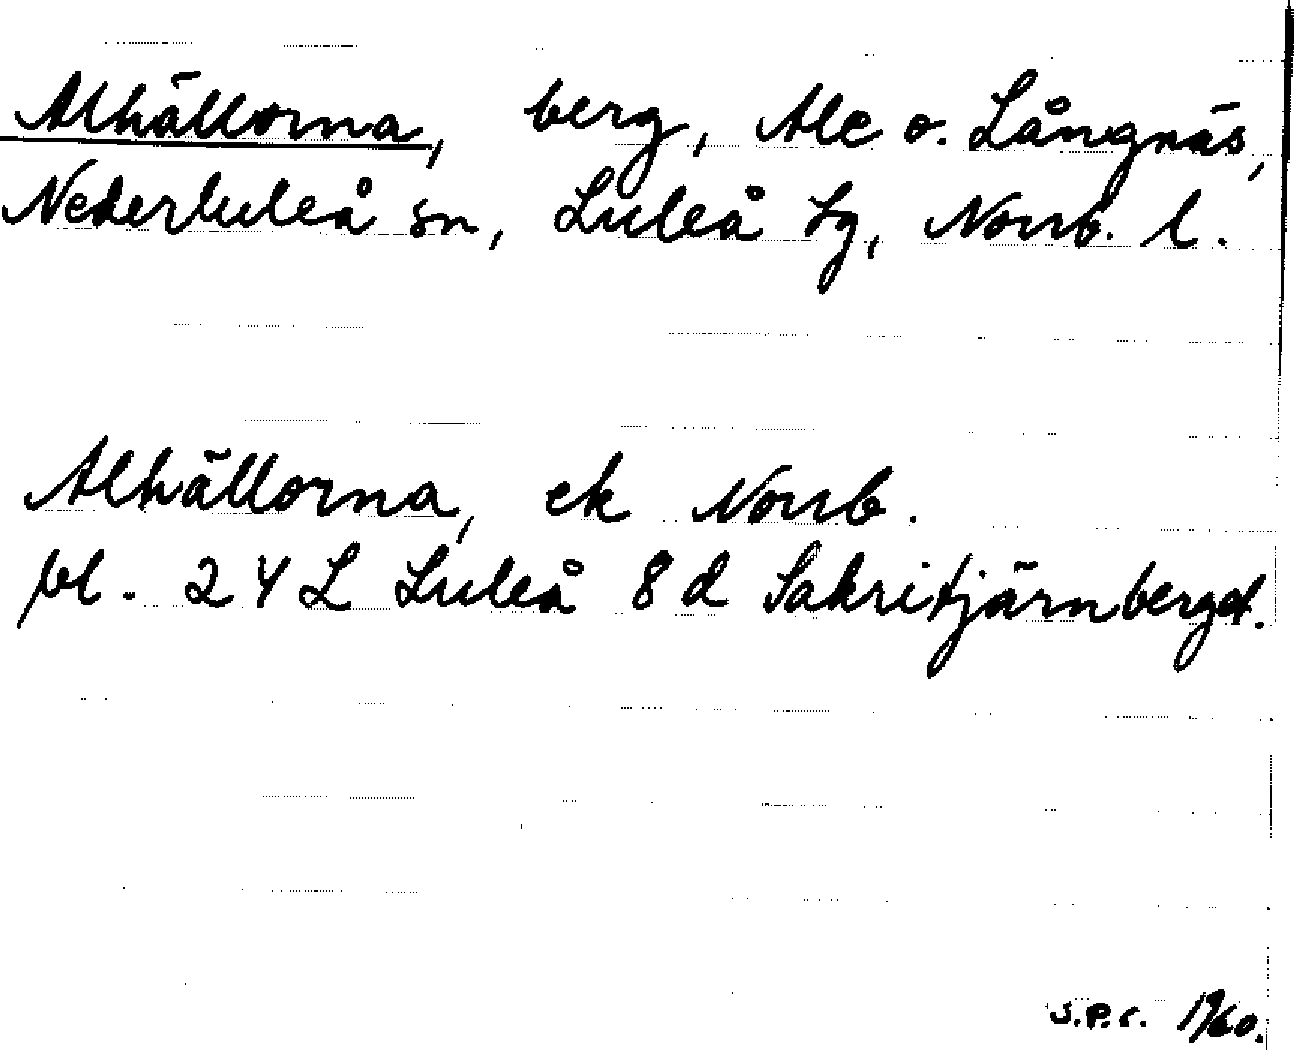 Alhällorna, berg, Ale o. Långnäs,
Nederluleå sn, Luleå tg, Norrb. l.
Alhällorna, ek Norrb.
bl. 24L Luleå 8d Sakritjärnberget.
S.P.r. 1960.